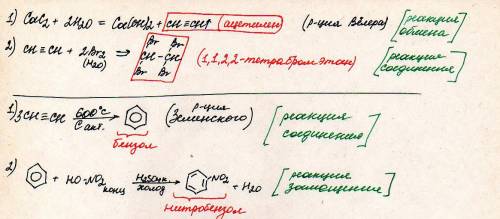 1) CaC₂ + 2H₂O = Ca(OH)₂ + CH≡CH↑ (ацетилен) (р-ция Вёлера) [реакция обмена]
2) CH≡CH + 2Br₂ (H₂O) ⇒ Br Br CH-CH Br Br (1,1,2,2-тетрабромэтан) [реакция соединения]
1) 3CH≡CH 600°C C акт. → (р-ция Зелинского) [реакция соединения]
бензол
2) + HO-NO₂ конц H₂SO₄ к. холод → NO₂ + H₂O [реакция замещения]
нитробензол